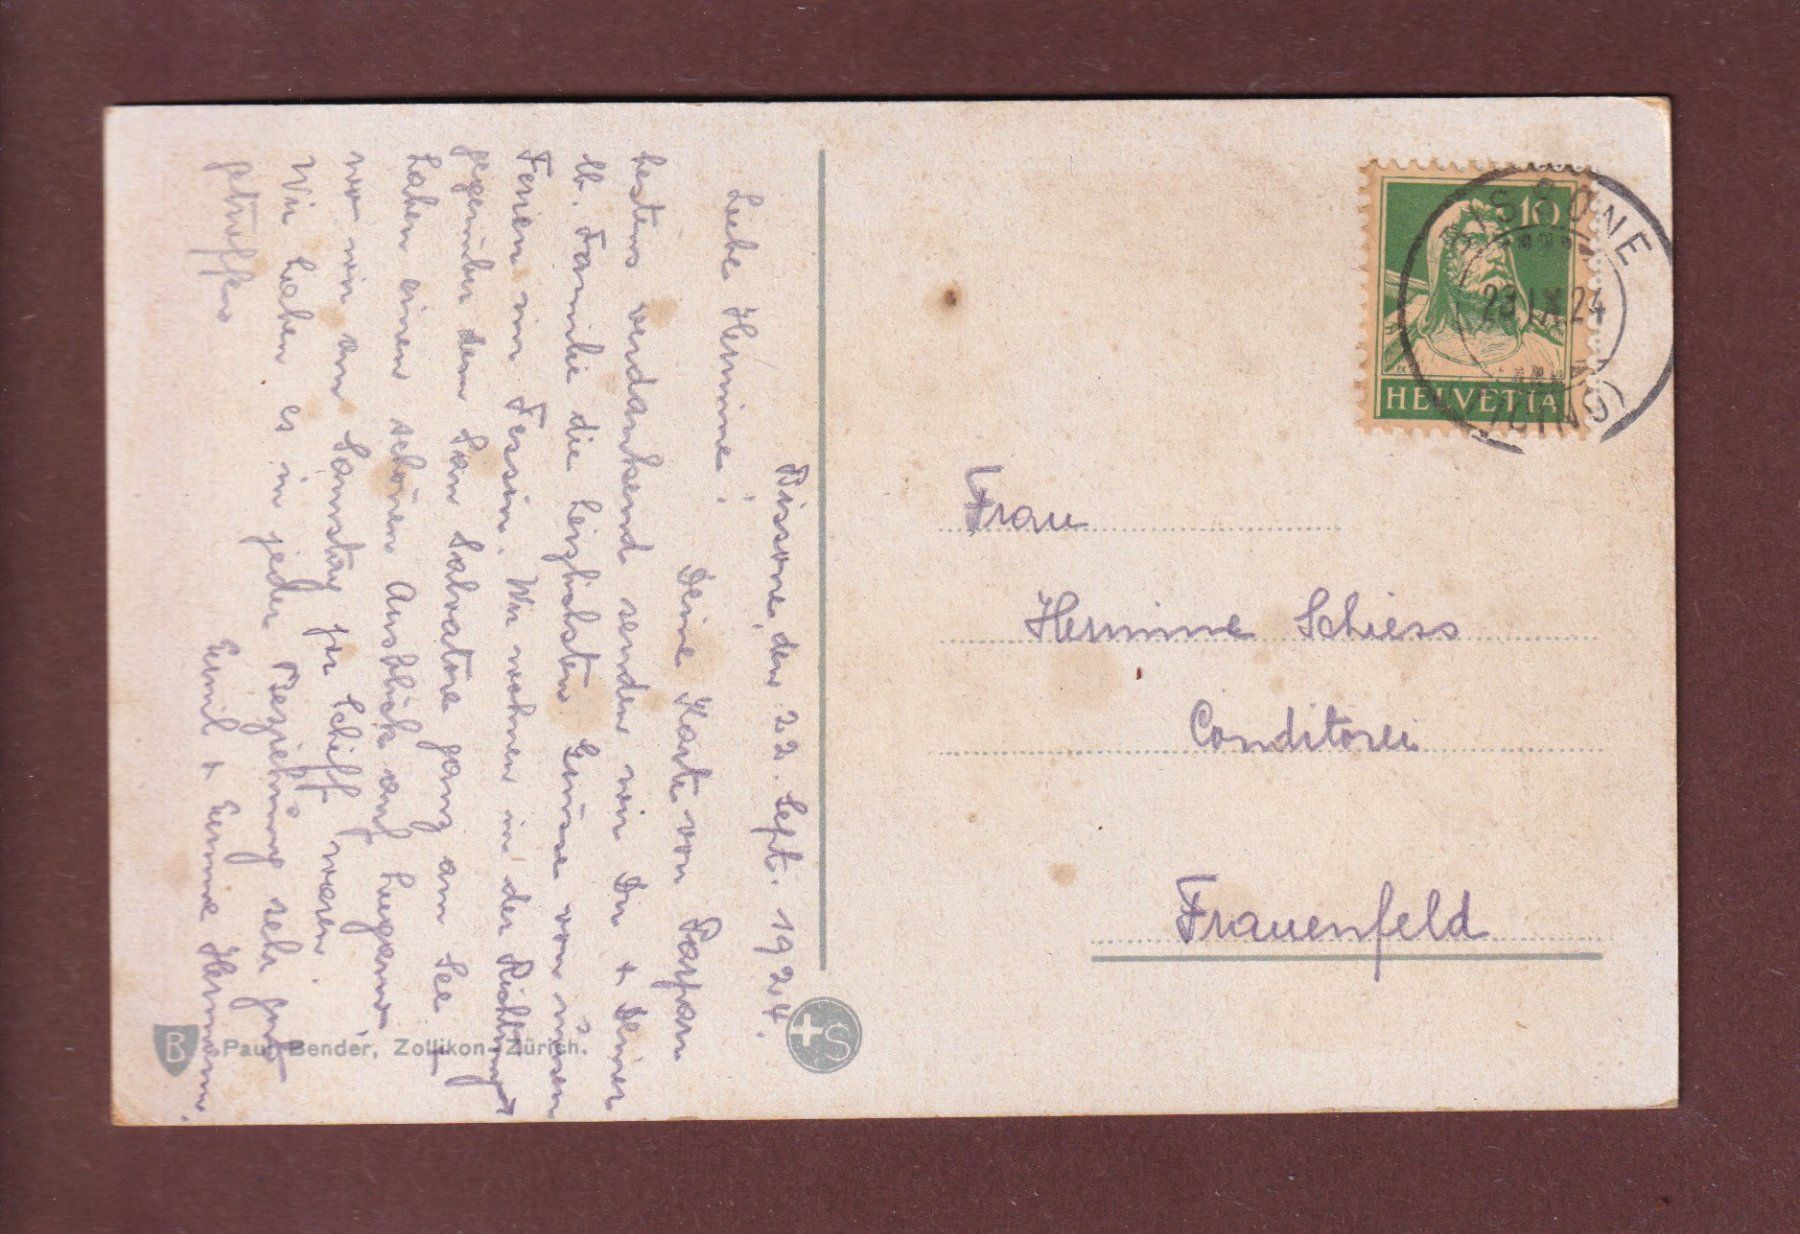 Bissone, den 22. Sept. 1924.
Liebe Hermine!
Deine Karte von
bestens verdankend senden wir Dir + Deiner
lb. Familie die herzlichsten Grüsse von unsern
Ferien im Tessin. Wir wohnen in der Richtung
gegenüber dem San Salvatore ganz am See +
haben einen schönen Ausblick auf Lugano
wo wir am Samstag per Schiff waren.
Wir haben es in jeder Beziehung sehr gut
getroffen
Emil + Emma Hermann.
B Paul Bender, Zollikon-Zürich.
+S
10
HELVETIA
BISSONE
23 IX 24
(TICINO)
Frau
Hermine Schiess
Conditorei
Frauenfeld